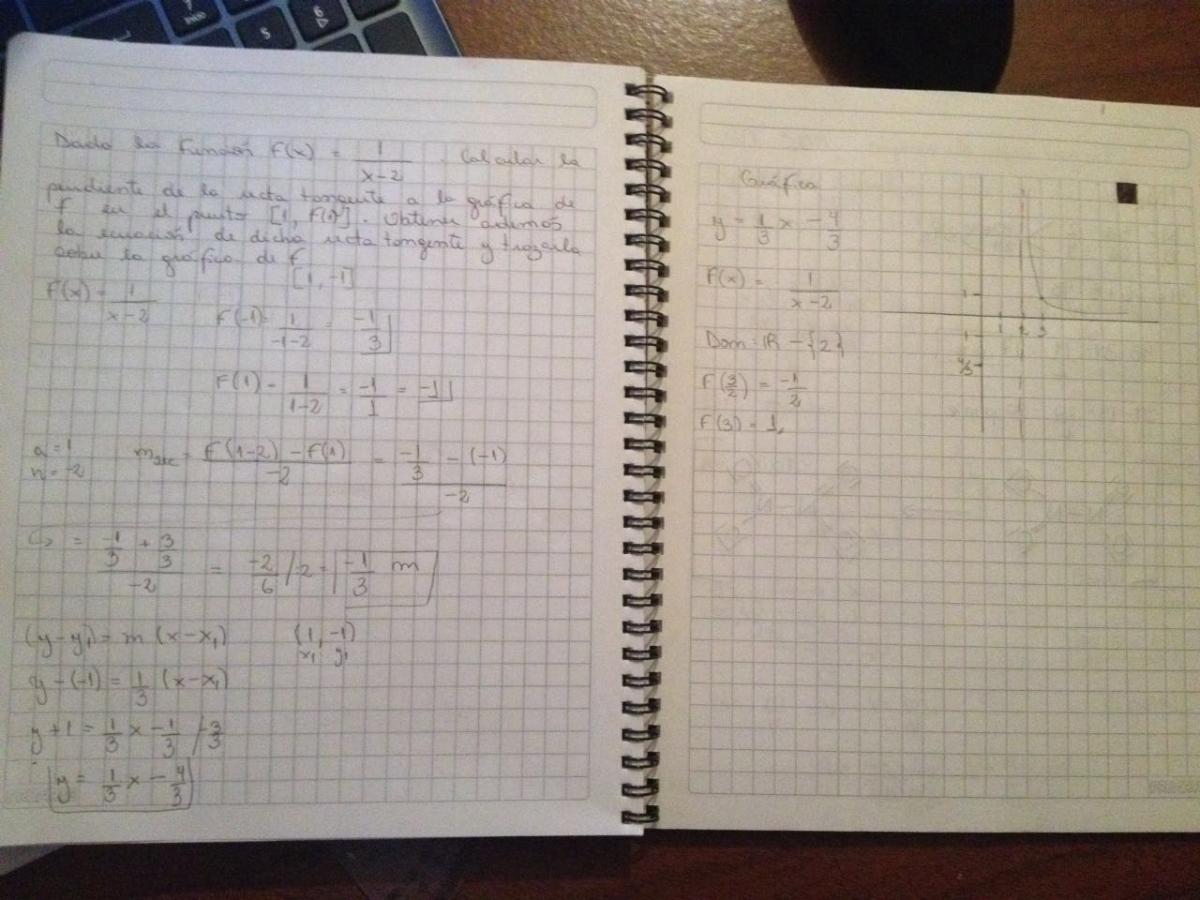 Dado la función f(x) = 1/(x-2). Calcular la
pendiente de la recta tangente a la gráfica de
f en el punto [1, F(1)]. Obtener además
la ecuación de dicha recta tangente y trazarla
sobre la gráfica de f
[1, -1]
F(x) = 1/(x-2)
F(-1) = 1/(-1-2) = -1/3
F(1) = 1/(1-2) = -1/1 = -1
a = 1
h = -2
m sec = (F(1-2) - F(1))/-2 = (-1/3 - (-1))/-2
↳ = (-1/3 + 3/3)/-2 = -2/6 /-2 = -1/3 m
(y-y1) = m (x-x1) (1, -1)
x1 y1
y-(-1) = 1/3 (x-x1)
y+1 = 1/3 x - 1/3 /-3/3
y = 1/3 x - 4/3
Gráfica
y = 1/3 x - 4/3
F(x) = 1/(x-2)
Dom: IR - {2}
F(3/2) = -1/2
F(3) = 1
1 2 3